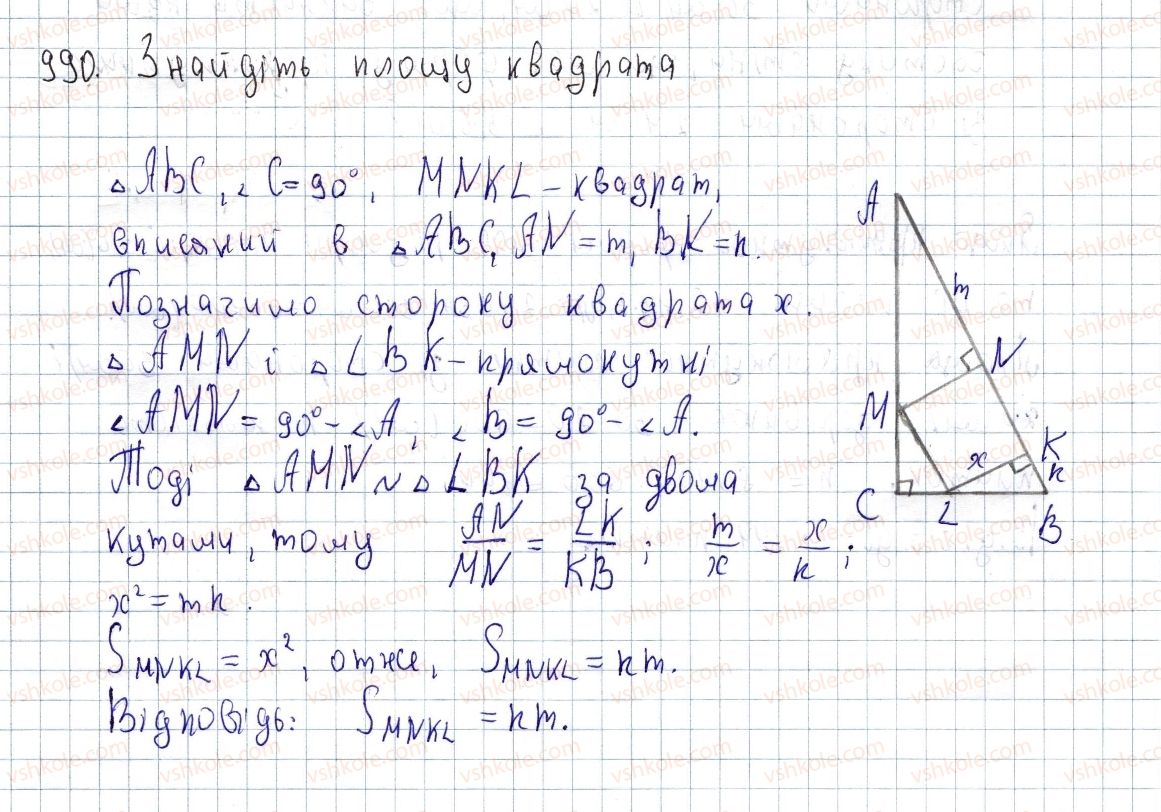 990. Знайдіть площу квадрата
△ABC, ∠C=90°, MNKL – квадрат,
вписаний в △ABC, AN=m, BK=n.
Позначимо сторону квадрата x.
△AMN і △LBK – прямокутні
∠AMN = 90°-∠A, ∠B = 90°-∠A.
Тоді △AMN ~ △LBK за двома
кутами, тому AN/MN = LK/KB; m/x = x/n;
x² = mn.
S_MNKL = x², отже, S_MNKL = nm.
Відповідь: S_MNKL = nm.
A
m
N
M
x
K
n
C
L
B
vshkole.com